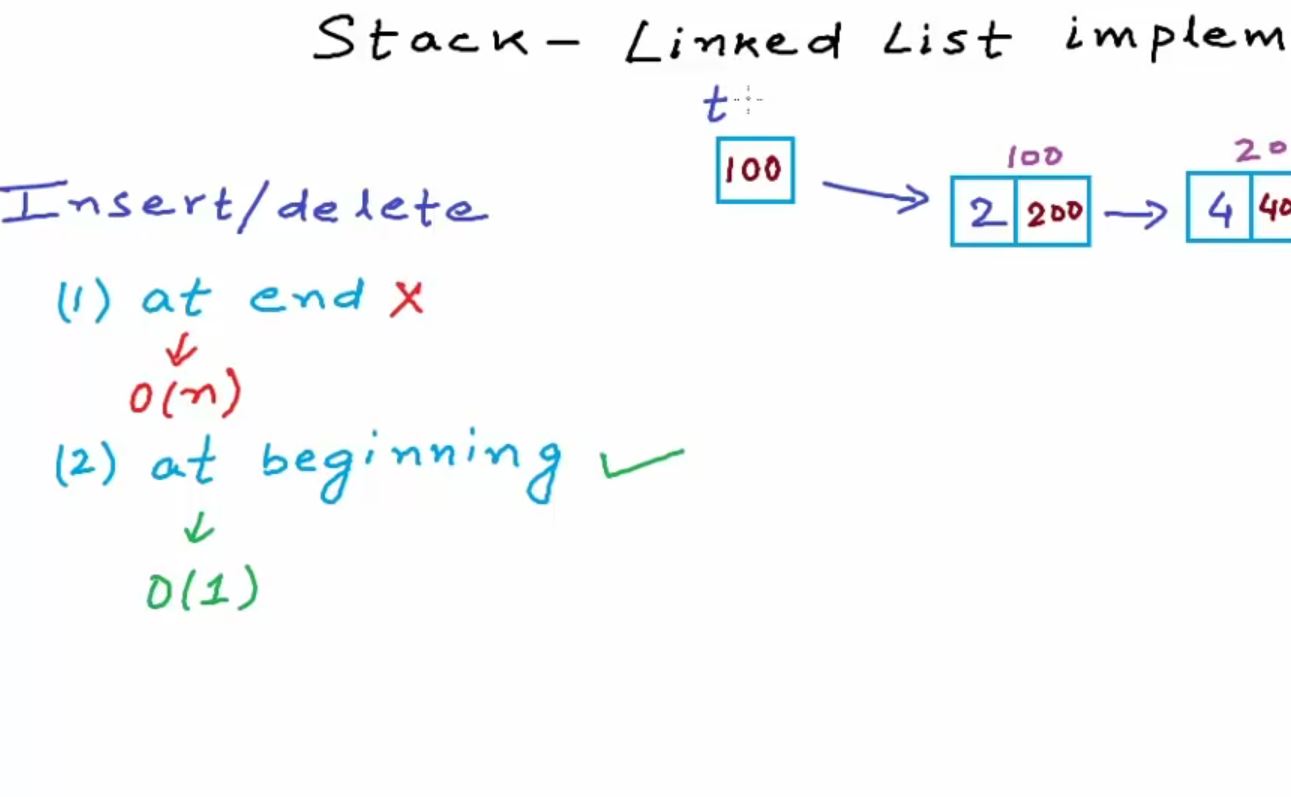 Stack - Linked List implem
t
100
100
2 200
20
4 40
Insert/delete
(1) at end X
O(n)
(2) at beginning ✓
O(1)